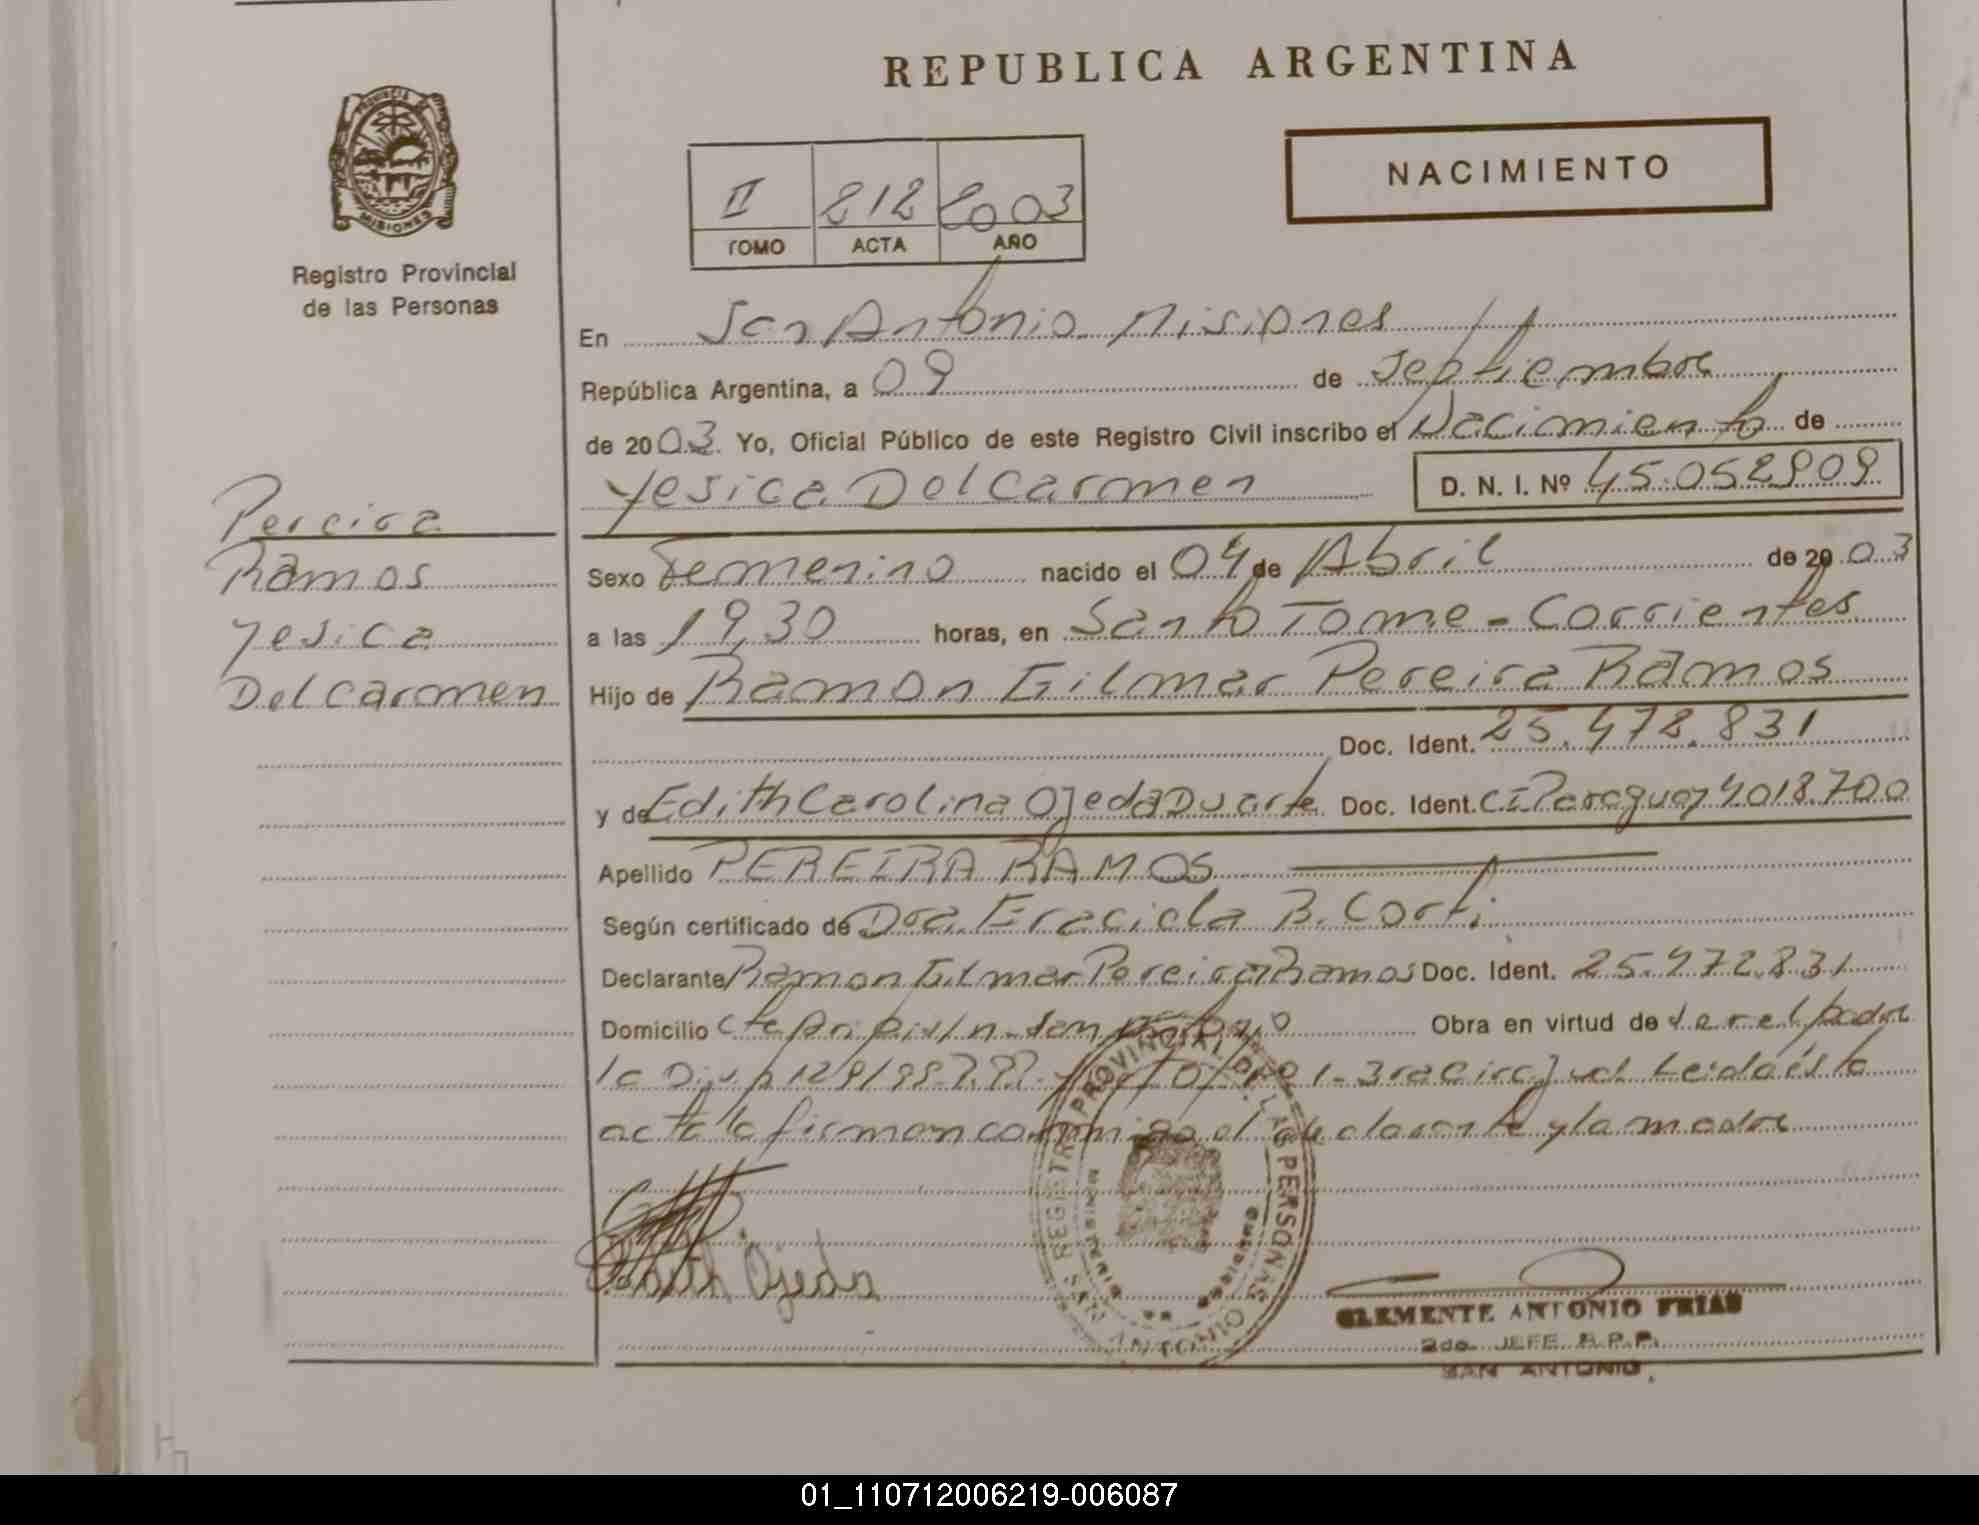 REPUBLICA ARGENTINA
PROVINCIA DE
MISIONES
Registro Provincial
de las Personas
NACIMIENTO
II 212 2003
TOMO ACTA AÑO
En San Antonio Misiones
República Argentina, a 09 de Septiembre
de 2003. Yo, Oficial Público de este Registro Civil inscribo el Nacimiento de
Yesica Del Carmen D. N. I. Nº 45.052909
Pereira
Ramos
Yesica
Del Carmen
Sexo Femenino nacido el 04 de Abril de 2003
a las 19,30 horas, en Santo Tome - Corrientes
Hijo de Ramon Gilmar Pereira Ramos
Doc. Ident. 25.472.831
y de Edith Carolina Ojeda Duarte Doc. Ident. CI Paraguay 4018.700
Apellido PEREIRA RAMOS
Según certificado de Dra. Graciela B. Corti
Declarante Ramon Gilmar Pereira Ramos Doc. Ident. 25.472.831
Domicilio Obra en virtud de ser el padre
la Leida ésta
acta la firman conmigo el declarante y la madre
Edith Ojeda
REGISTRO PROVINCIAL DE LAS PERSONAS
SAN ANTONIO
CLEMENTE ANTONIO FRIAS
2do. JEFE R.P.P.
SAN ANTONIO
01_110712006219-006087